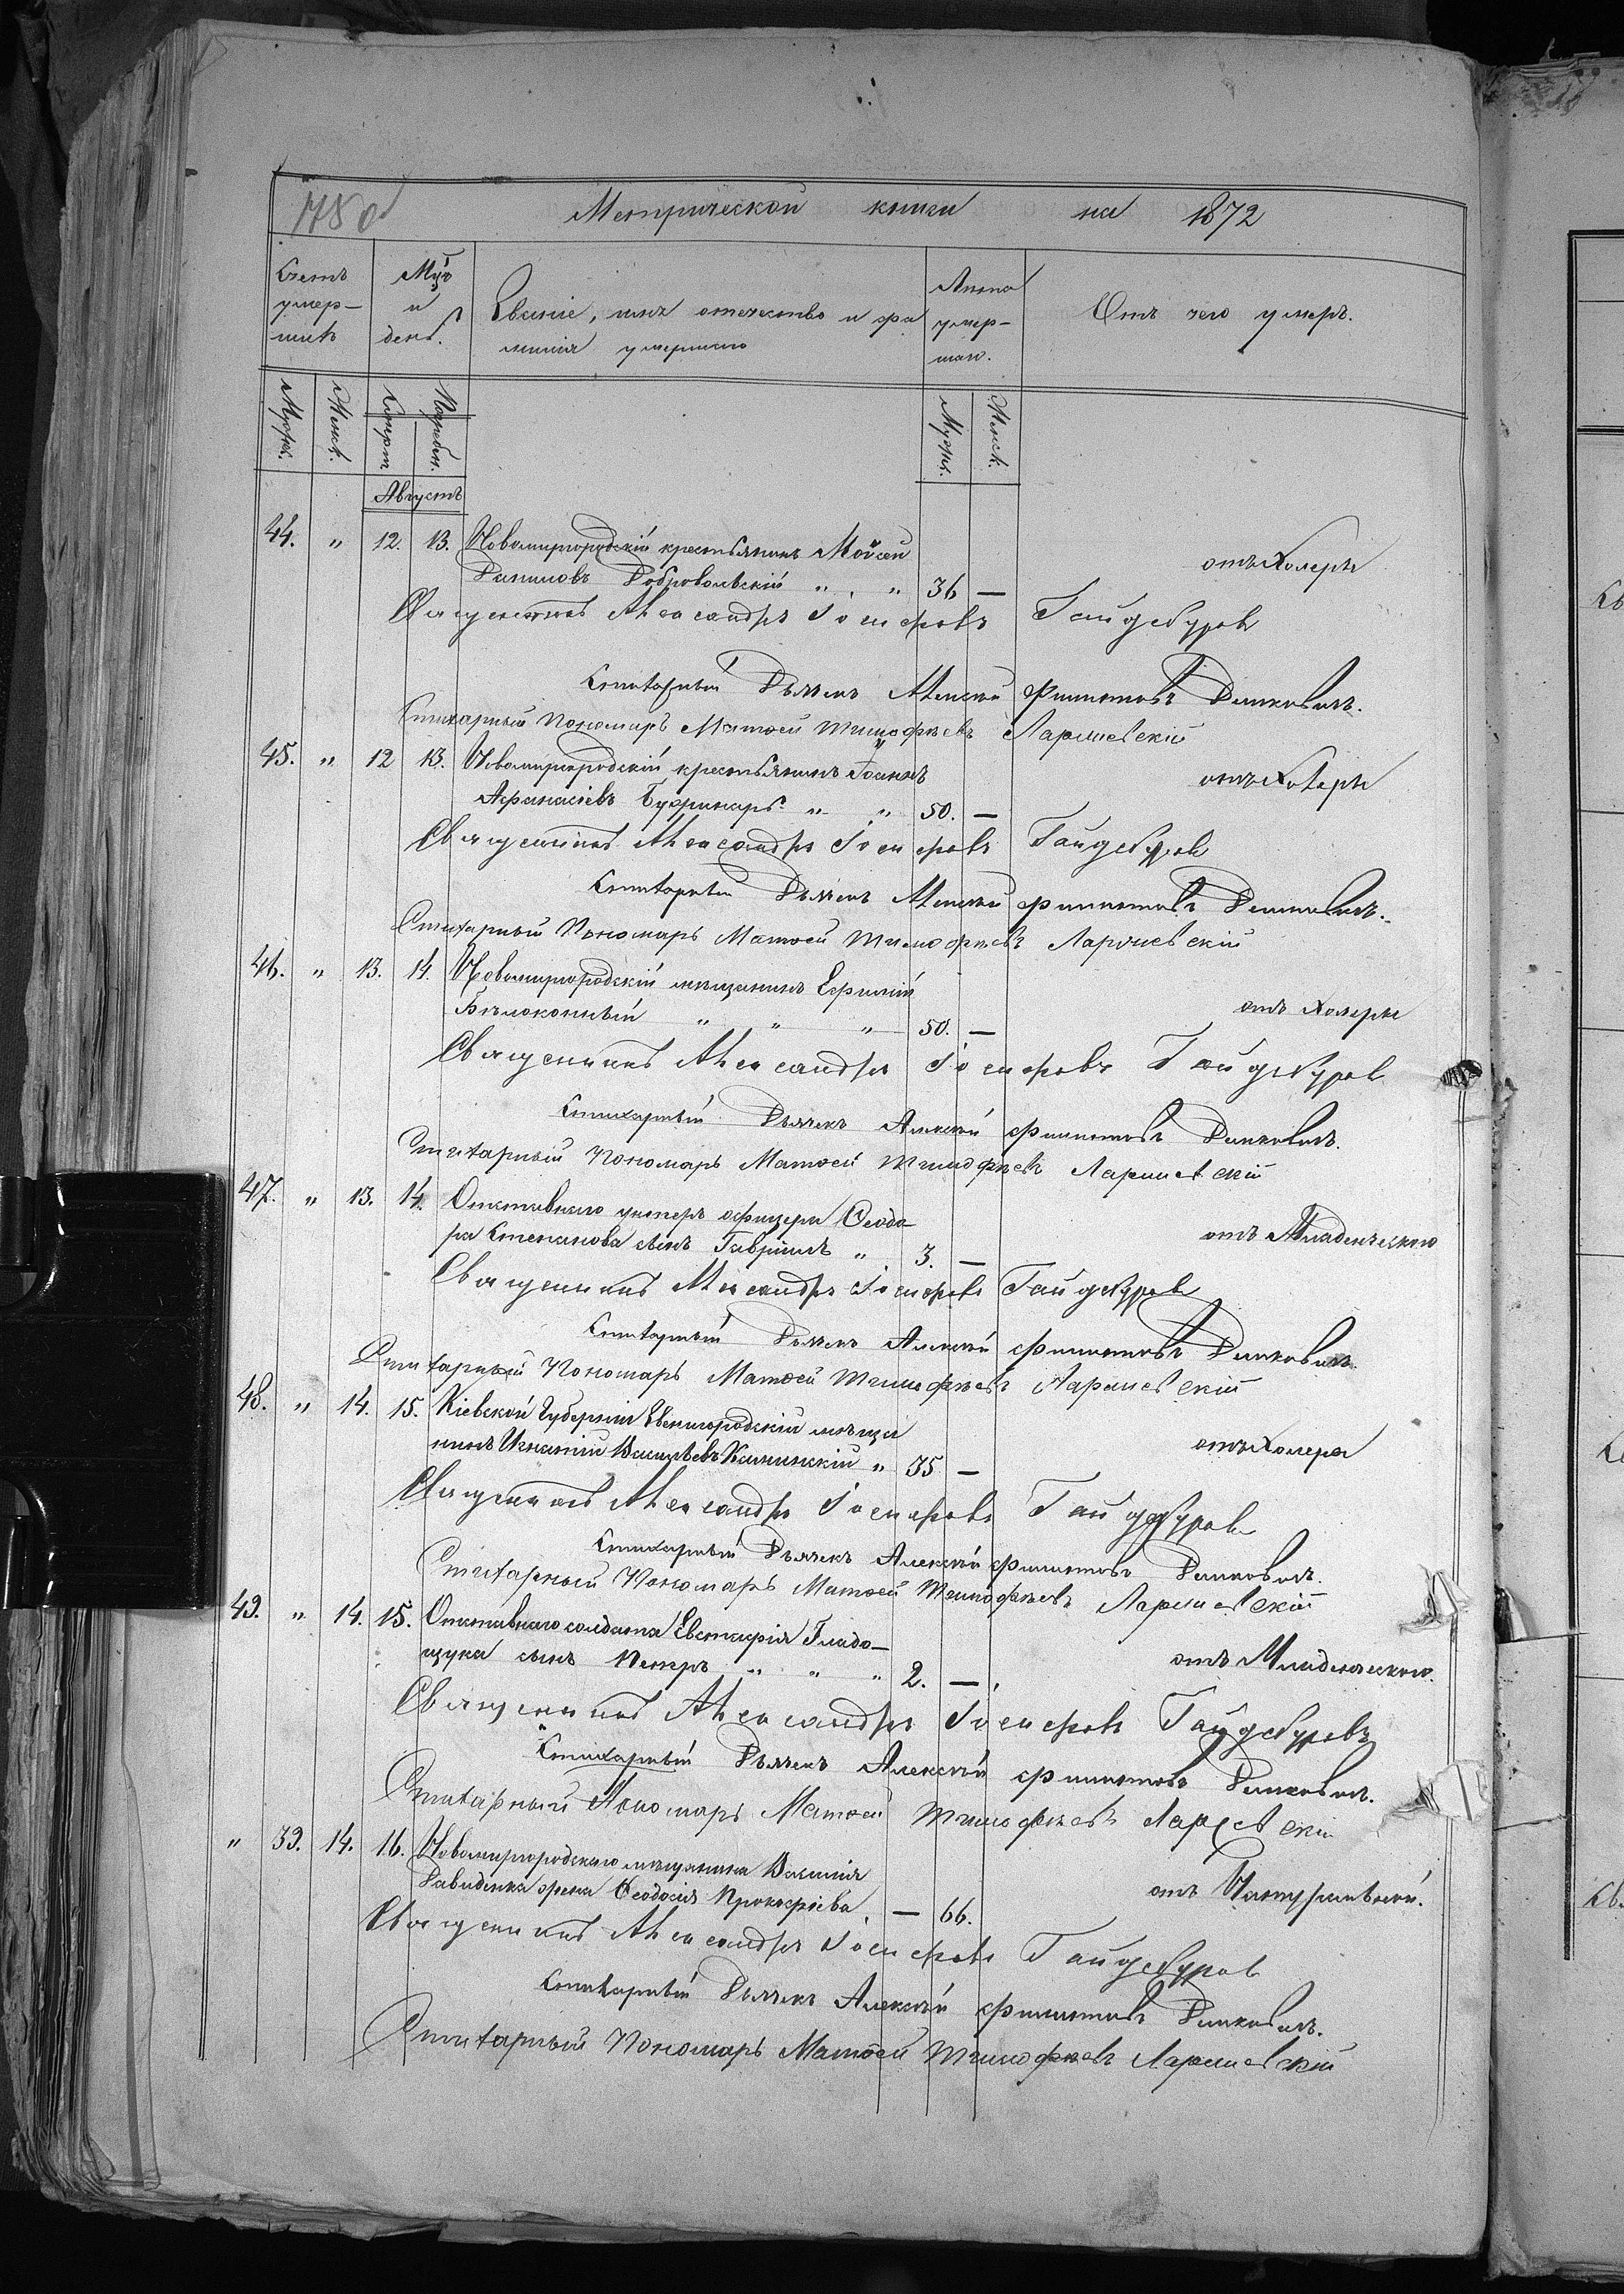 780
Метрической книги на 1872
Счетъ умер-шихъ
Мѣц и день.
Званіе, имя отчество и фа
милія умершаго
Лѣта умер-шаго.
Отъ чего умеръ.
Мужск.
Женск.
Смерти
Погребен.
Мужск.
Женск.
Августъ
44. " 12. 13. Новомиргородскій крестьянинъ Моѵсей
Даниловъ Добровольскій " " 36 — отъ Холеры
Священникъ Александръ Іосифовъ Гайдебуровъ
Стихарный Дьячекъ Алексѣй Филиповъ Димковичъ.
Стихарный Пономарь Матѳей Тимофѣевъ Ларшевскій
45. " 12 13. Новомиргородскій крестьянинъ Іоаннъ
Афанасіевъ " " 50. — отъ Холеры
Священникъ Александръ Іосифовъ Гайдебуровъ
Стихарный Дьячекъ Алексѣй Филиповъ Димковичъ.
Стихарный Пономарь Матѳей Тимофѣевъ Ларшевскій
46. " 13. 14. Новомиргородскій мѣщанинъ Ефимій
Бѣлоконный " " " 50. — отъ Холеры
Священникъ Александръ Іосифовъ Гайдебуровъ
Стихарный Дьячекъ Алексѣй Филиповъ Димковичъ.
Стихарный Пономарь Матѳей Тимофѣевъ Ларшевскій
47. " 13. 14. Отставнаго унтеръ офицера Ѳеодо-
ра Степанова сынъ Гавріилъ " 3. — отъ Младенческаго
Священникъ Александръ Іосифовъ Гайдебуровъ
Стихарный Дьячекъ Алексѣй Филиповъ Димковичъ.
Стихарный Пономарь Матѳей Тимофѣевъ Ларшевскій
48. " 14. 15. Кіевской Губерніи Звенигородскій мѣща
нинъ Игнатій Васильевъ Калинскій " 35 — отъ Холеры
Священникъ Александръ Іосифовъ Гайдебуровъ
Стихарный Дьячекъ Алексѣй Филиповъ Димковичъ.
Стихарный Пономарь Матѳей Тимофѣевъ Ларшевскій
49. " 14. 15. Отставнаго солдата Евстафія Гладо-
щука сынъ Петръ " " " 2. — отъ Младенческаго.
Священникъ Александръ Іосифовъ Гайдебуровъ
Стихарный Дьячекъ Алексѣй Филиповъ Димковичъ.
Стихарный Пономарь Матѳей Тимофѣевъ Ларшевскій
" 39. 14. 16. Новомиргородскаго мѣщанина Василія
Давиденка жена Ѳеодосія Прокофіева — 66. отъ Натуральной.
Священникъ Александръ Іосифовъ Гайдебуровъ
Стихарный Дьячекъ Алексѣй Филиповъ Димковичъ.
Стихарный Пономарь Матѳей Тимофѣевъ Ларшевскій